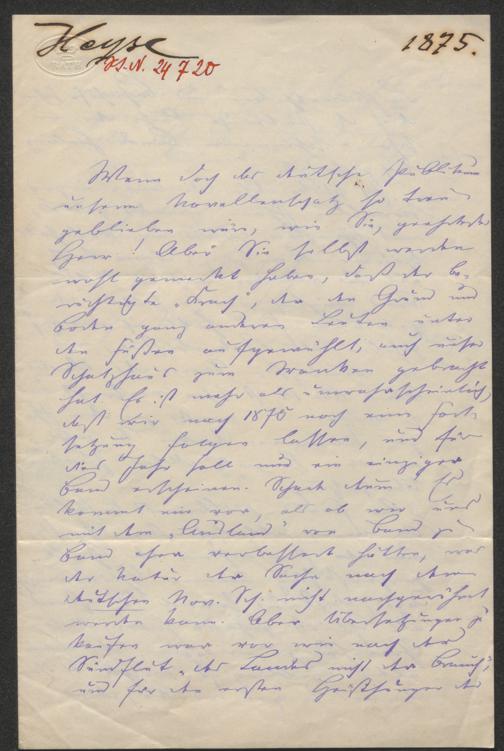 Heyse
1875.
I.N. 24720
Wenn doch das deutsche Publikum
unserm Novellenschatz so treu
geblieben wäre, wie Sie, geehrtester
Herr! Aber Sie selbst werden
wohl gemerkt haben, daß der be-
rüchtigte „Krach", der den Grund und
Boden ganz anderen Leuten unter
den Füßen aufgewühlt, auch unser
Schatzhaus zum Wanken gebracht
hat. Es ist mehr als unwahrscheinlich,
daß wir nach 1875 noch eine Fort-
setzung folgen lassen, und für
dies Jahr soll nur ein einziger
Band erscheinen. Schade drum! Es
kommt mir vor, als ob wir uns
mit dem „Ausland" von Band zu
Band eher verbessert hätten, was
der Natur der Sache nach dem
deutschen Nov. Sch. nicht nachgerühmt
werden kann. Aber Übersetzungen zu
kaufen war vor wie nach der
Sündflut „des Landes nicht der Brauch",
und für den ersten Heißhunger der